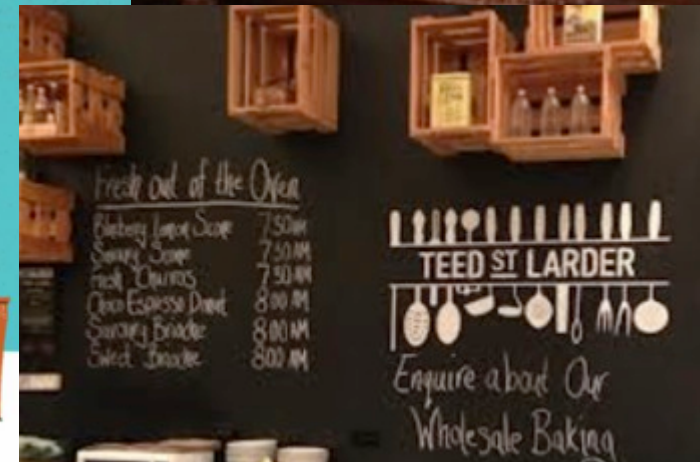 Fresh out of the Oven
Blueberry Lemon Scone 7:50AM
Savoury Scone 7:50AM
Fresh Churros 7:50AM
Choco Espresso Donut 8:00AM
Savoury Brioche 8:00AM
Sweet Brioche 8:00AM
TEED ST LARDER
Enquire about Our
Wholesale Baking